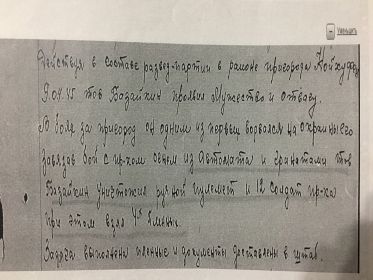 Уменьшить
Действуя в составе развед.партии в районе пригорода
9.04.45 тов Базайкин проявил мужество и отвагу.
В боях за пригород он одним из первых ворвался на окраину его
завязав бой с пр-ком огнем из автомата и гранатами тов
Базайкин уничтожил ручной пулемет и 12 солдат пр-ка
при этом взяло пленных.
Задача выполнена пленные и документы доставлены в штаб.